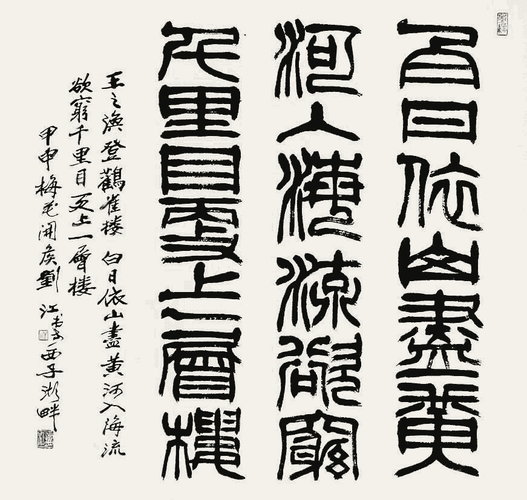 白日依山盡黃
河入海流欲窮
千里目更上一層樓
王之渙登鸛雀楼 白日依山盡黃河入海流
欲窮千里目更上一層楼
甲申梅花開候劉江書于西子湖畔